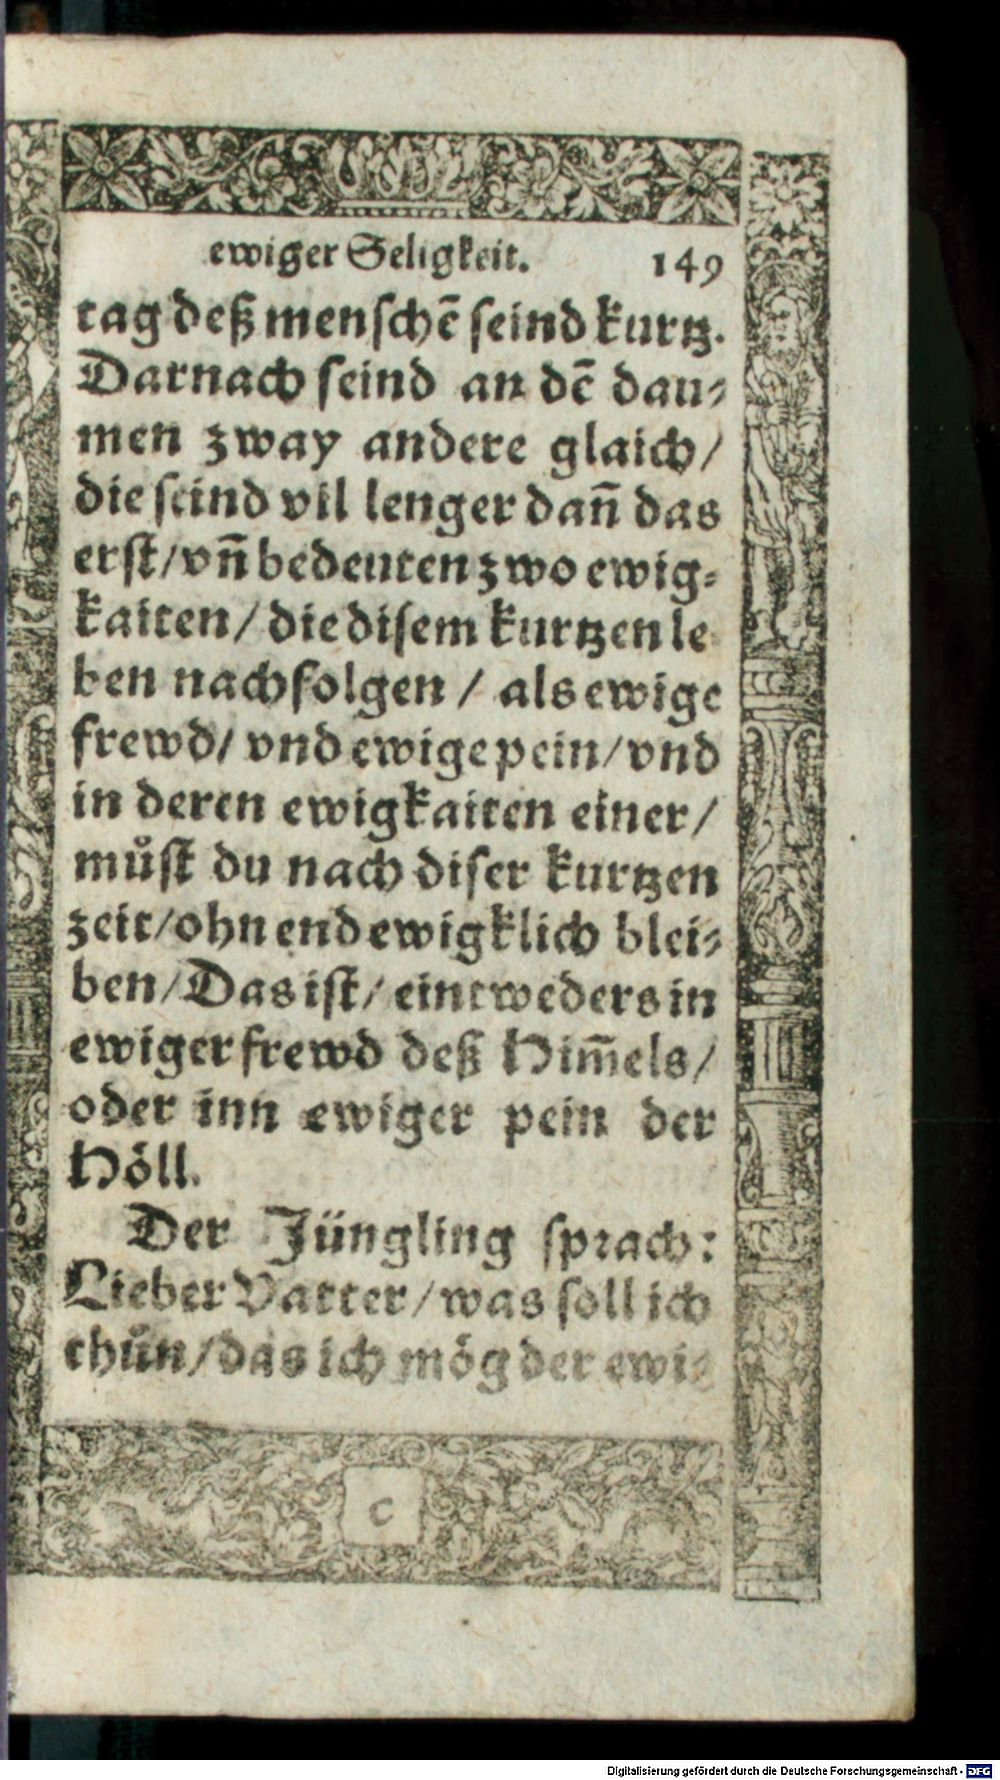 ewiger Seligkeit. 149
tag deß menschē seind kurtz.
Darnach seind an dē dau⸗
men zway andere glaich/
die seind vil lenger dañ das
erst/vñ bedeuten zwo ewig⸗
kaiten/ die disem kurtzen le
ben nachfolgen / als ewige
frewd/ vnd ewige pein/vnd
in deren ewigkaiten einer/
můst du nach diser kurtzen
zeit/ohn end ewigklich blei⸗
ben/Das ist/ eintweders in
ewiger frewd deß Him̄els/
oder inn ewiger pein der
Höll.
Der Jüngling sprach:
Lieber Vatter/was soll ich
thůn/das ich mög der ewi⸗
c
Digitalisierung gefördert durch die Deutsche Forschungsgemeinschaft - DFG